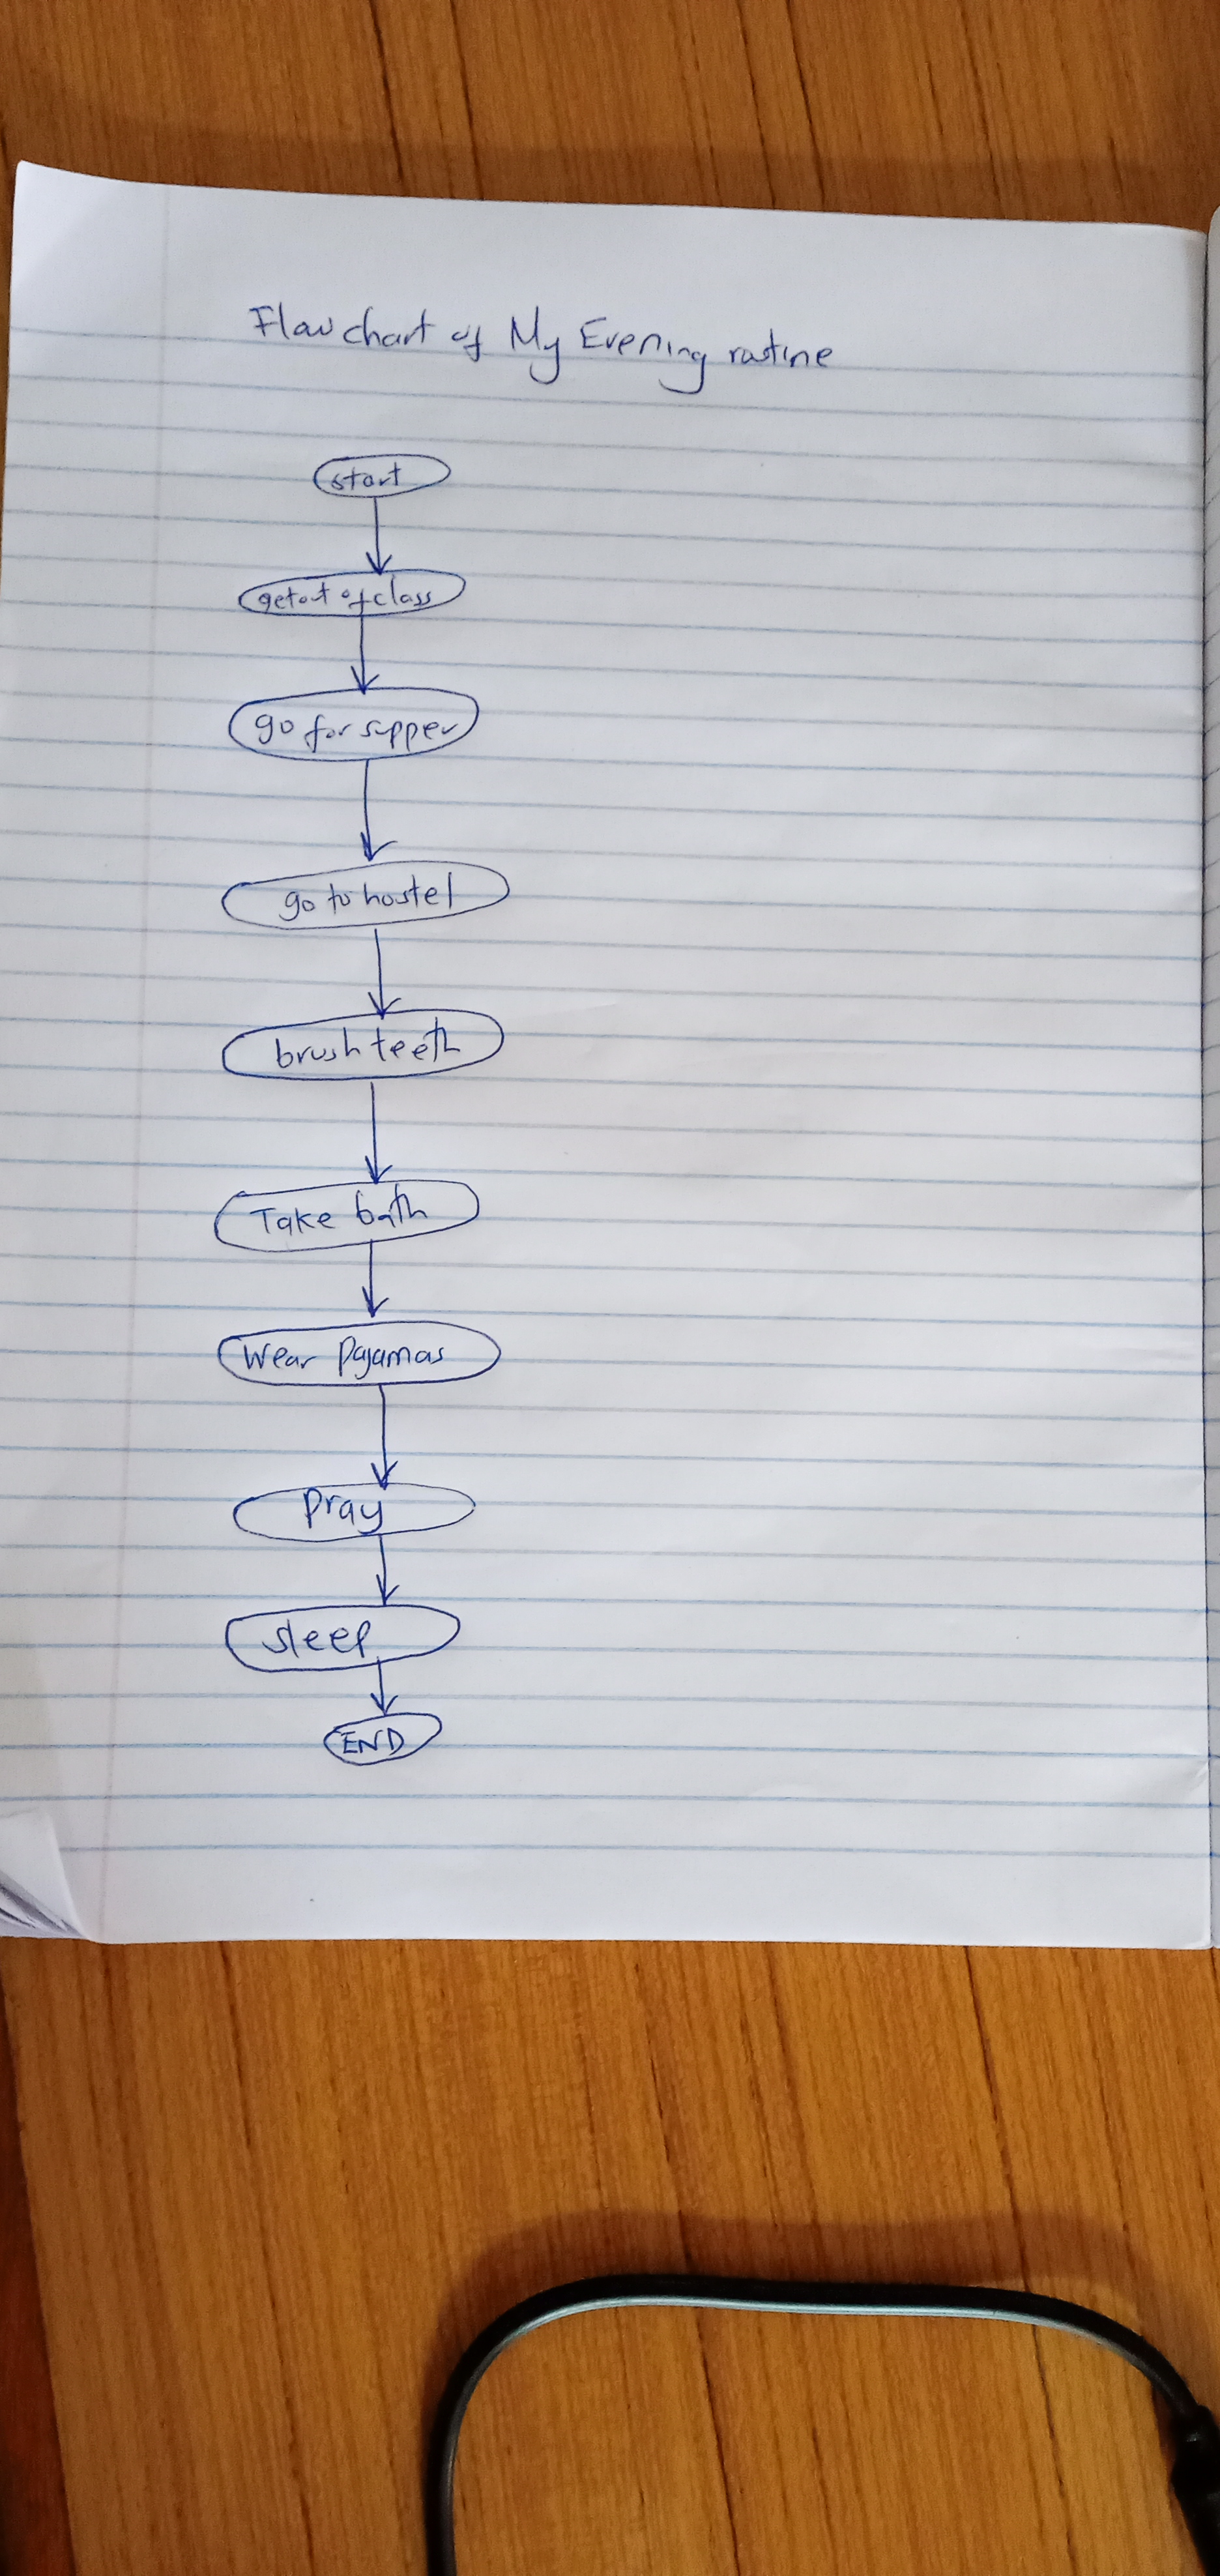 Flow chart of My Evening routine
start
get out of class
go for supper
go to hostel
brush teeth
Take bath
Wear Pajamas
Pray
sleep
END